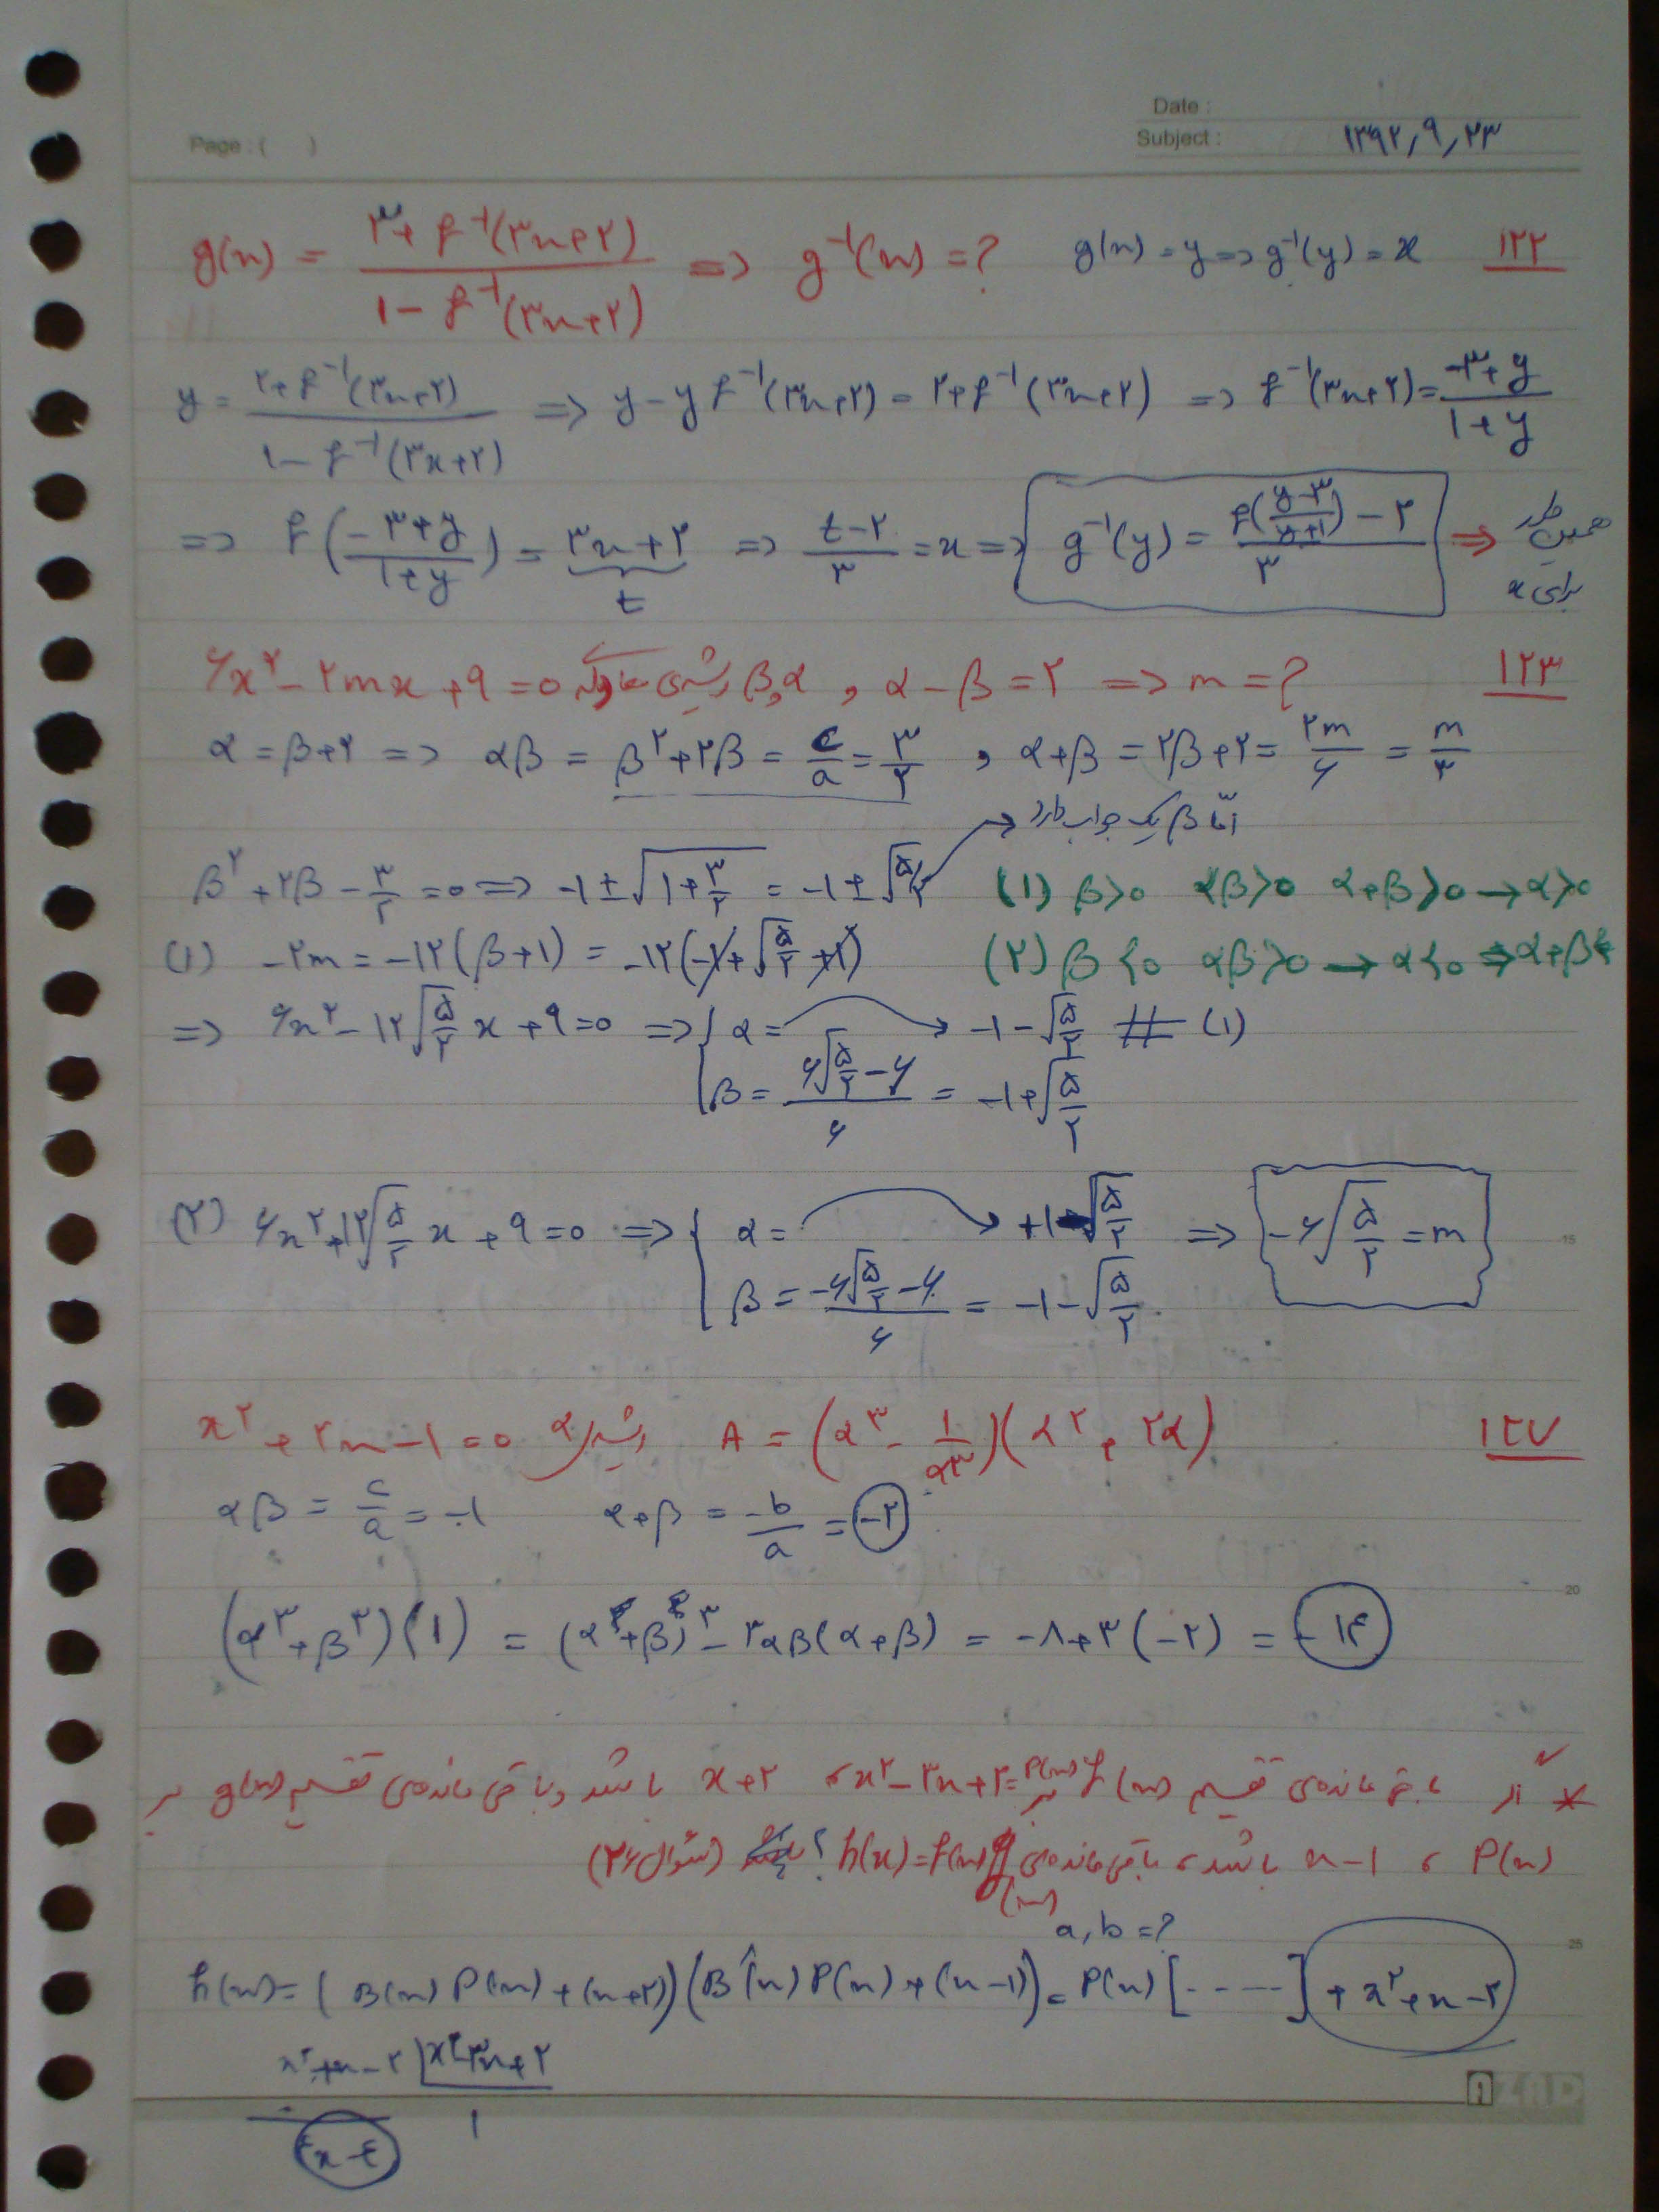 Date :
Page : ( ) Subject : ۱۳۹۲, ۹, ۲۳
g(x) = (۳ + f⁻¹(۳x+۲)) / (۱ - f⁻¹(۳x+۲)) => g⁻¹(x) = ? g(x) = y => g⁻¹(y) = x ۱۲۲
y = (۳+f⁻¹(۳x+۲)) / (۱ - f⁻¹(۳x+۲)) => y - y f⁻¹(۳x+۲) = ۳+f⁻¹(۳x+۲) => f⁻¹(۳x+۲) = (-۳+y)/(۱+y)
=> f((-۳+y)/(۱+y)) = ۳x+۲ => (t-۲)/۳ = x => g⁻¹(y) = (f((y-۳)/(y+۱)) - ۲)/۳ => همین طور برای x
t
۶x² - ۲mx + ۹ = 0 α و β ریشه‌ی معادله , α - β = ۲ => m = ? ۱۲۳
α = β+۲ => αβ = β²+۲β = c/a = ۳/۲ , α+β = ۲β+۲ = ۲m/۶ = m/۳
امّا β یک جواب دارد
β²+۲β - ۳/۲ = 0 => -۱ ± √(۱+۳/۲) = -۱ ± √(۵/۲) (۱) β>0 αβ>0 α+β>0 → α>0
(۱) -۲m = -۱۲(β+۱) = -۱۲(-۱+√(۵/۲)+۱) (۲) β<0 αβ>0 → α<0 => α+β<
=> ۶x² - ۱۲√(۵/۲) x + ۹ = 0 => { α = → -۱-√(۵/۲) # (۱)
β = (۶√(۵/۲) - ۶)/۶ = -۱+√(۵/۲)
(۲) ۶x²+۱۲√(۵/۲) x + ۹ = 0 => { α = → +۱-√(۵/۲) => -۶√(۵/۲) = m
β = (-۶√(۵/۲) - ۶)/۶ = -۱-√(۵/۲)
x² + ۲x - ۱ = 0 α ریشه‌ی A = (α³ - ۱/α³)(α² + ۲α) ۱۲۷
αβ = c/a = -۱ α+β = -b/a = -۲
(α³+β³)(۱) = (α+β)³ - ۳αβ(α+β) = -۸+۳(-۲) = -۱۴
* اگر باقی مانده‌ی تقسیم f(x) بر P(x)=x²-۳x+۲ ، x+۲ باشد و باقی مانده‌ی تقسیم g(x) بر
P(x) ، x-۱ باشد، باقی مانده‌ی h(x)=f(x)g(x) ؟ (سوال ۲۶)
a, b = ?
h(x) = (B(x) P(x) + (x+۲))(B́(x) P(x) + (x-۱)) = P(x) [-----] + x²+x-۲
x²+x-۲ | x²-۳x+۲
۱
۴x-۴
AZAD
15
20
25